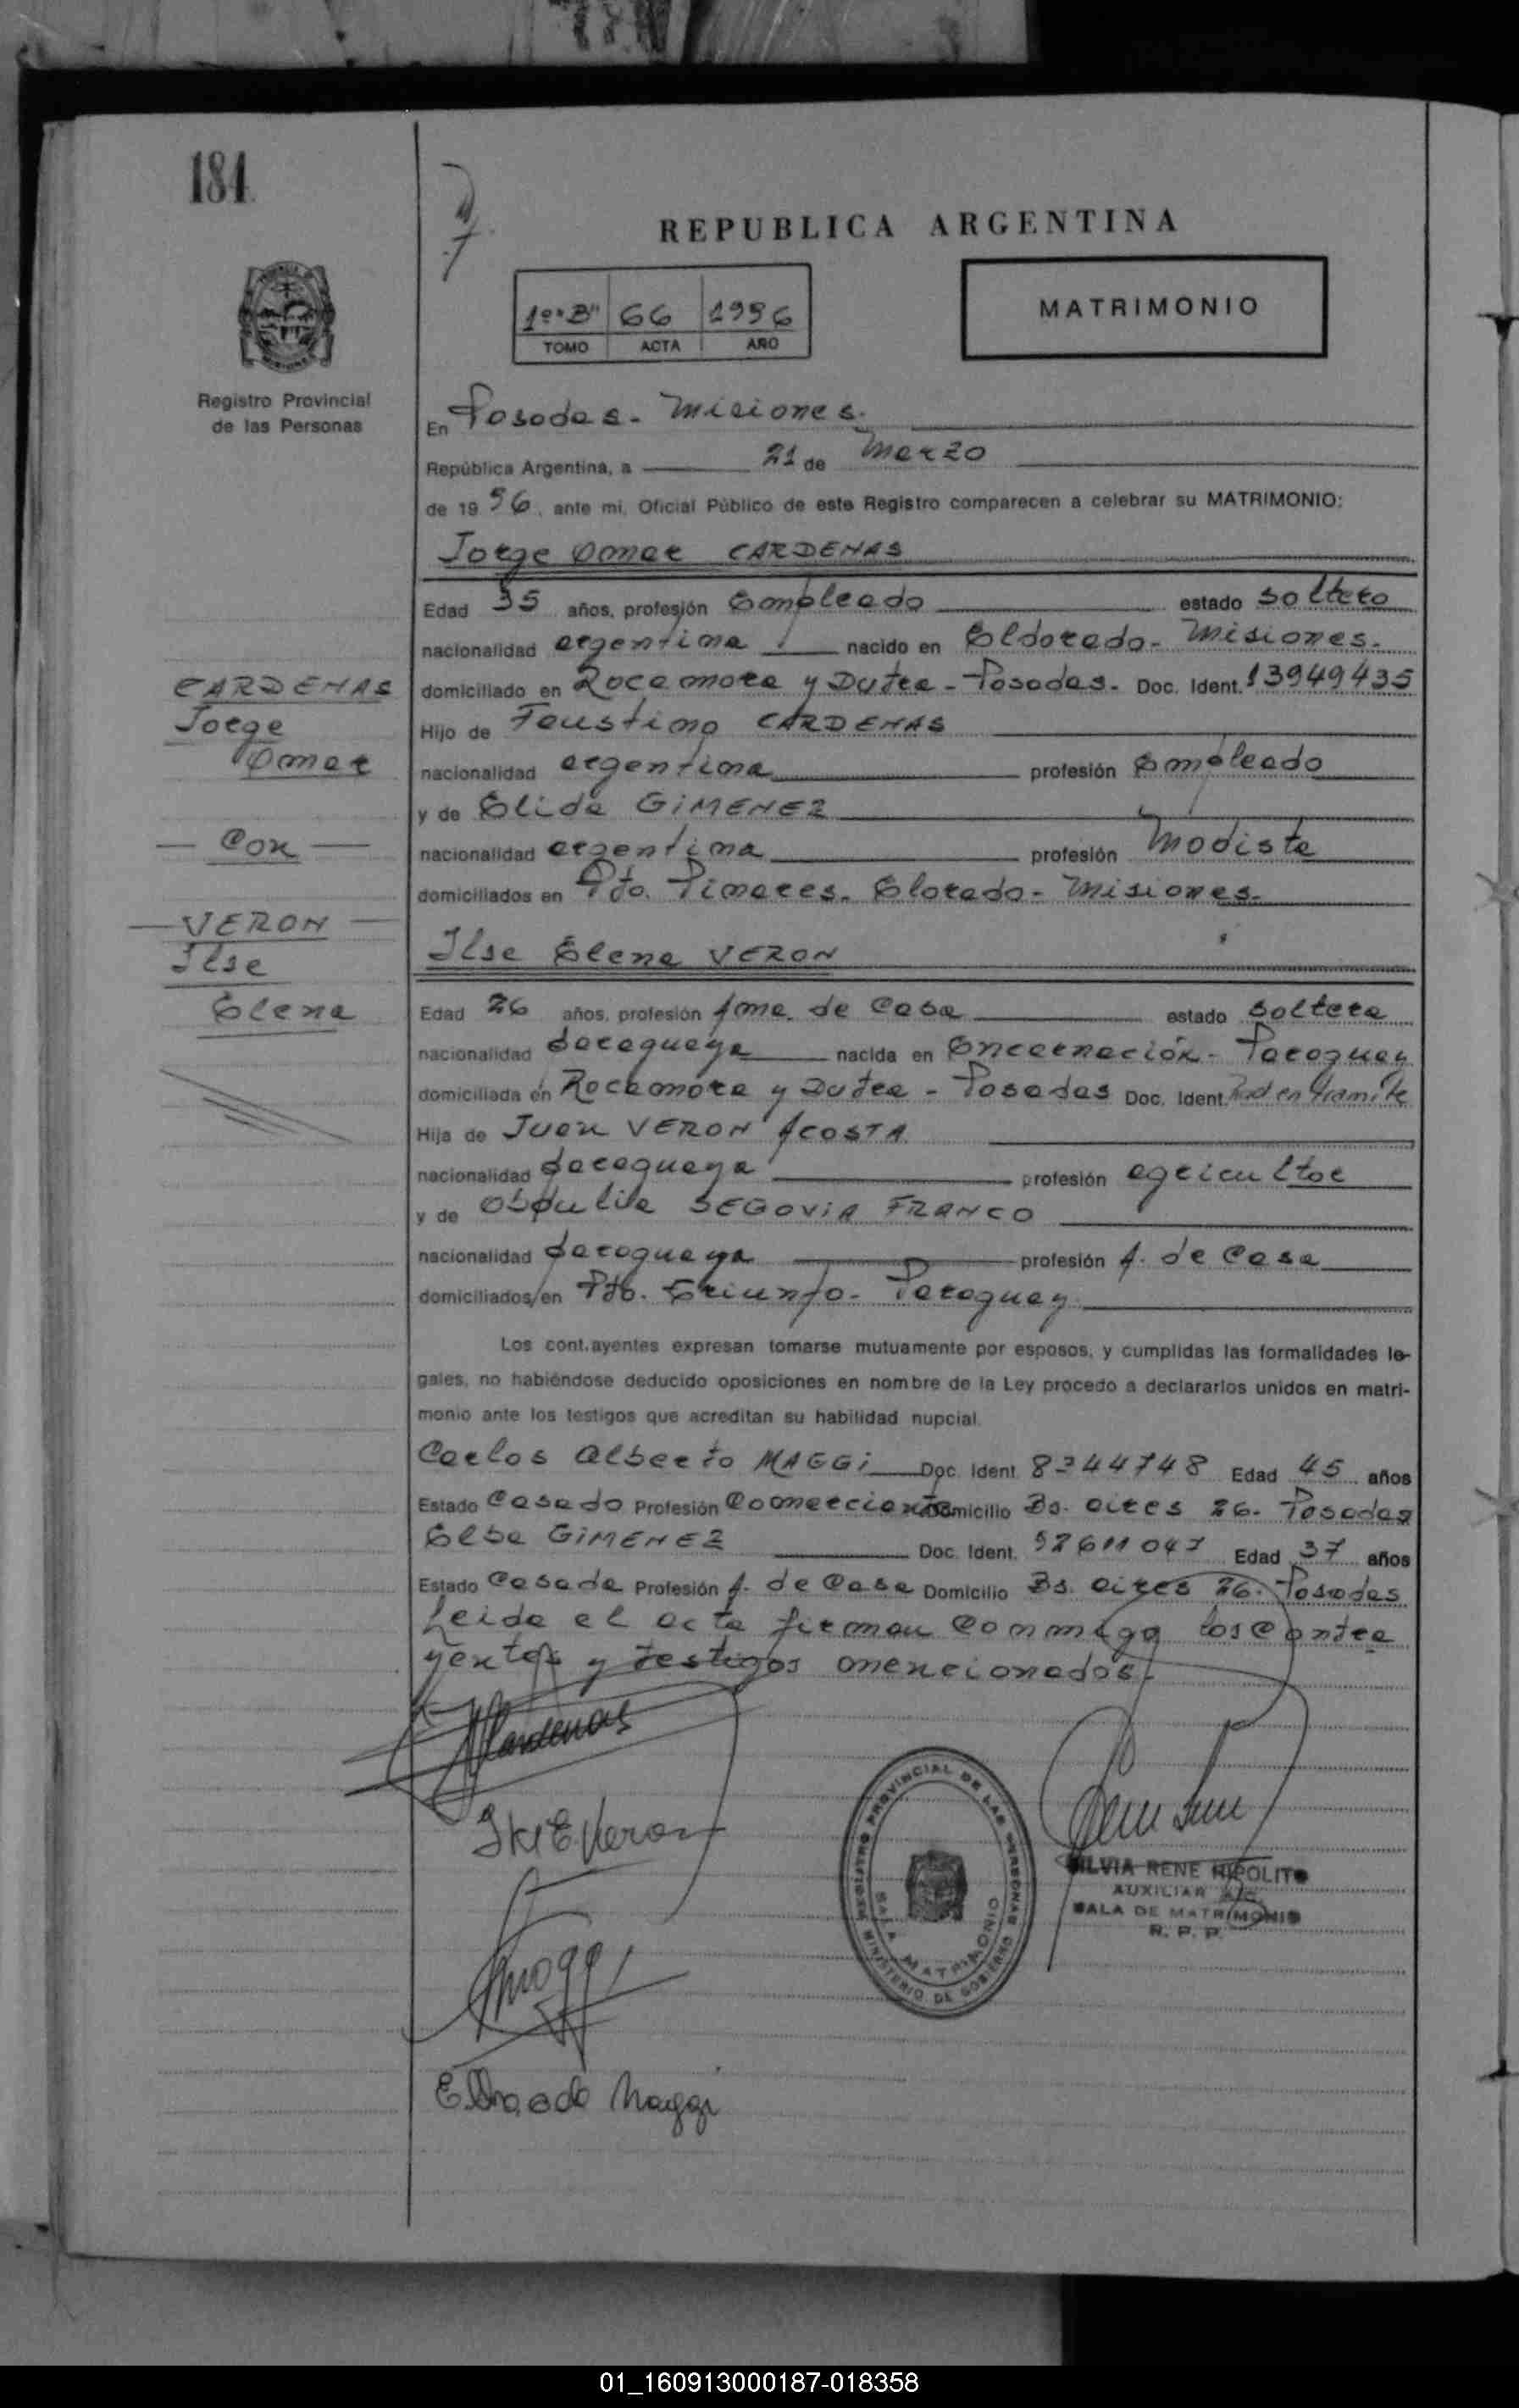 184
REPUBLICA ARGENTINA
1º "B" 66 1996
TOMO ACTA AÑO
MATRIMONIO
Registro Provincial
de las Personas
En Posadas - Misiones.
República Argentina, a 21 de Marzo
de 1996, ante mi, Oficial Público de este Registro comparecen a celebrar su MATRIMONIO:
Jorge Omar CARDENAS
Edad 35 años, profesión Empleado estado soltero
nacionalidad argentina nacido en Eldorado - Misiones.
domiciliado en Rocamora y Dutra - Posadas. Doc. Ident. 13949435
Hijo de Faustino CARDENAS
nacionalidad argentina profesión Empleado
y de Elida GIMENEZ
nacionalidad argentina profesión Modista
domiciliados en Pto. Pinares. Elorado - Misiones.
CARDENAS
Jorge
Omar
— Con —
— VERON —
Ilse
Elena
Ilse Elena VERON
Edad 26 años, profesión Ama. de Casa estado soltera
nacionalidad paraguaya nacida en Encarnación - Paraguay
domiciliada en Rocamora y Dutra - Posadas Doc. Ident. Rad en tramite
Hija de Juan VERON ACOSTA
nacionalidad paraguaya profesión agricultor
y de Obdulia SEGOVIA FRANCO
nacionalidad paraguaya profesión A. de Casa
domiciliados en Pto. Triunfo - Paraguay
Los contrayentes expresan tomarse mutuamente por esposos, y cumplidas las formalidades le-
gales, no habiéndose deducido oposiciones en nombre de la Ley procedo a declararlos unidos en matri-
monio ante los testigos que acreditan su habilidad nupcial.
Carlos Alberto MAGGI Doc. Ident. 8344748 Edad 45 años
Estado Casado Profesión Comerciante Domicilio Bs. Aires 26. Posadas
Elba GIMENEZ Doc. Ident. 92611047 Edad 37 años
Estado Casada Profesión A. de Casa Domicilio Bs. Aires 26. Posadas
Leida el acta firman conmigo los contra
yentes y testigos mencionados.
Cardenas
Ilse E. Veron
REGISTRO PROVINCIAL DE LAS PERSONAS
SALA MATRIMONIO
MINISTERIO DE GOBIERNO
SILVIA RENE HIPOLITO
AUXILIAR A/C
SALA DE MATRIMONIO
R. P. P.
Elba G de Maggi
01_160913000187-018358